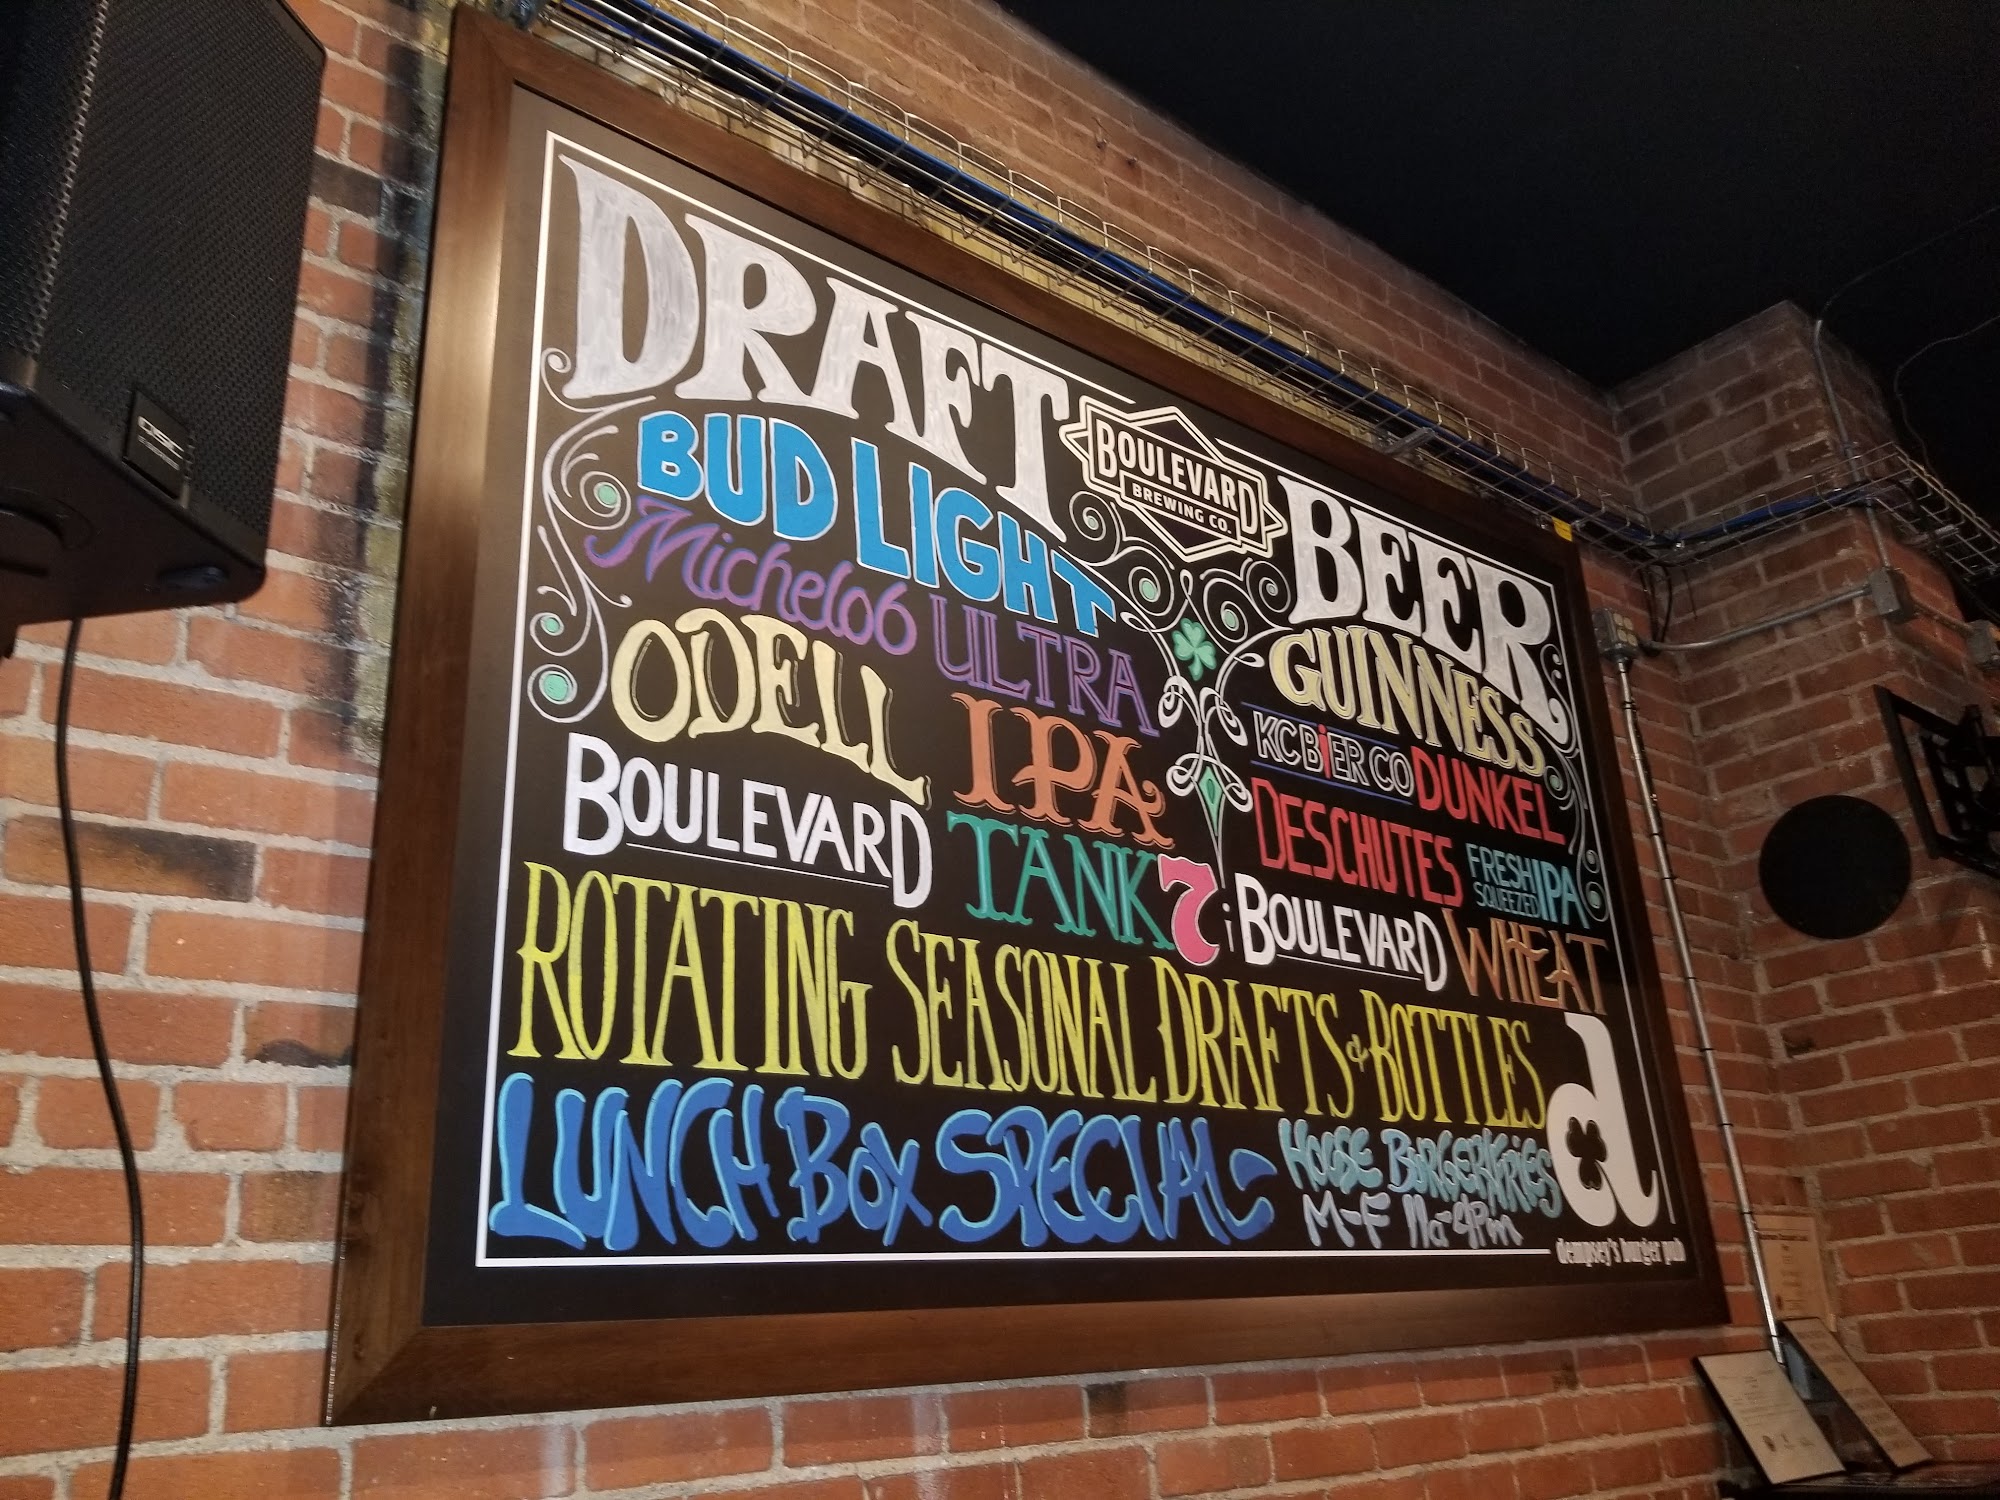 DRAFT BEER
BOULEVARD
BREWING CO.
BUD LIGHT
Michelob ULTRA
ODELL IPA
BOULEVARD TANK 7
GUINNESS
KC BiER CO DUNKEL
DESCHUTES FRESH SQUEEZED IPA
BOULEVARD WHEAT
ROTATING SEASONAL DRAFTS & BOTTLES
LUNCH BOX SPECIAL-
HOUSE BURGER/FRIES
M-F 11a-4Pm
d
dempsey's burger pub
QSC